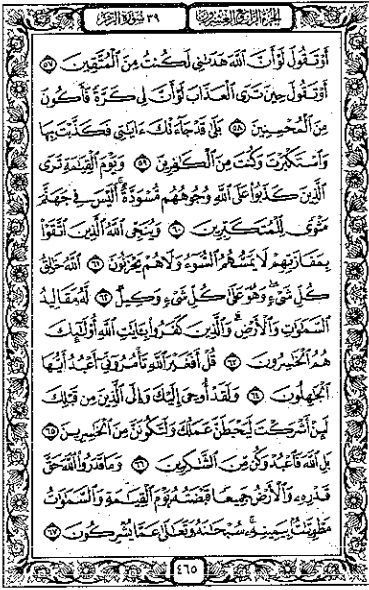 الجزء الرابع والعشرون ٣٩ سورة الزمر
أَوْ تَقُولَ لَوْ أَنَّ ٱللَّهَ هَدَىٰنِى لَكُنتُ مِنَ ٱلْمُتَّقِينَ ٥٧
أَوْ تَقُولَ حِينَ تَرَى ٱلْعَذَابَ لَوْ أَنَّ لِى كَرَّةً فَأَكُونَ
مِنَ ٱلْمُحْسِنِينَ ٥٨ بَلَىٰ قَدْ جَآءَتْكَ ءَايَٰتِى فَكَذَّبْتَ بِهَا
وَٱسْتَكْبَرْتَ وَكُنتَ مِنَ ٱلْكَٰفِرِينَ ٥٩ وَيَوْمَ ٱلْقِيَٰمَةِ تَرَى
ٱلَّذِينَ كَذَبُوا۟ عَلَى ٱللَّهِ وُجُوهُهُم مُّسْوَدَّةٌ ۚ أَلَيْسَ فِى جَهَنَّمَ
مَثْوًى لِّلْمُتَكَبِّرِينَ ٦٠ وَيُنَجِّى ٱللَّهُ ٱلَّذِينَ ٱتَّقَوْا۟
بِمَفَازَتِهِمْ لَا يَمَسُّهُمُ ٱلسُّوٓءُ وَلَا هُمْ يَحْزَنُونَ ٦١ ٱللَّهُ خَٰلِقُ
كُلِّ شَىْءٍ ۖ وَهُوَ عَلَىٰ كُلِّ شَىْءٍ وَكِيلٌ ٦٢ لَّهُۥ مَقَالِيدُ
ٱلسَّمَٰوَٰتِ وَٱلْأَرْضِ ۗ وَٱلَّذِينَ كَفَرُوا۟ بِـَٔايَٰتِ ٱللَّهِ أُو۟لَٰٓئِكَ
هُمُ ٱلْخَٰسِرُونَ ٦٣ قُلْ أَفَغَيْرَ ٱللَّهِ تَأْمُرُوٓنِّىٓ أَعْبُدُ أَيُّهَا
ٱلْجَٰهِلُونَ ٦٤ وَلَقَدْ أُوحِىَ إِلَيْكَ وَإِلَى ٱلَّذِينَ مِن قَبْلِكَ
لَئِنْ أَشْرَكْتَ لَيَحْبَطَنَّ عَمَلُكَ وَلَتَكُونَنَّ مِنَ ٱلْخَٰسِرِينَ ٦٥
بَلِ ٱللَّهَ فَٱعْبُدْ وَكُن مِّنَ ٱلشَّٰكِرِينَ ٦٦ وَمَا قَدَرُوا۟ ٱللَّهَ حَقَّ
قَدْرِهِۦ وَٱلْأَرْضُ جَمِيعًا قَبْضَتُهُۥ يَوْمَ ٱلْقِيَٰمَةِ وَٱلسَّمَٰوَٰتُ
مَطْوِيَّٰتٌۢ بِيَمِينِهِۦ ۚ سُبْحَٰنَهُۥ وَتَعَٰلَىٰ عَمَّا يُشْرِكُونَ ٦٧
٤٦٥